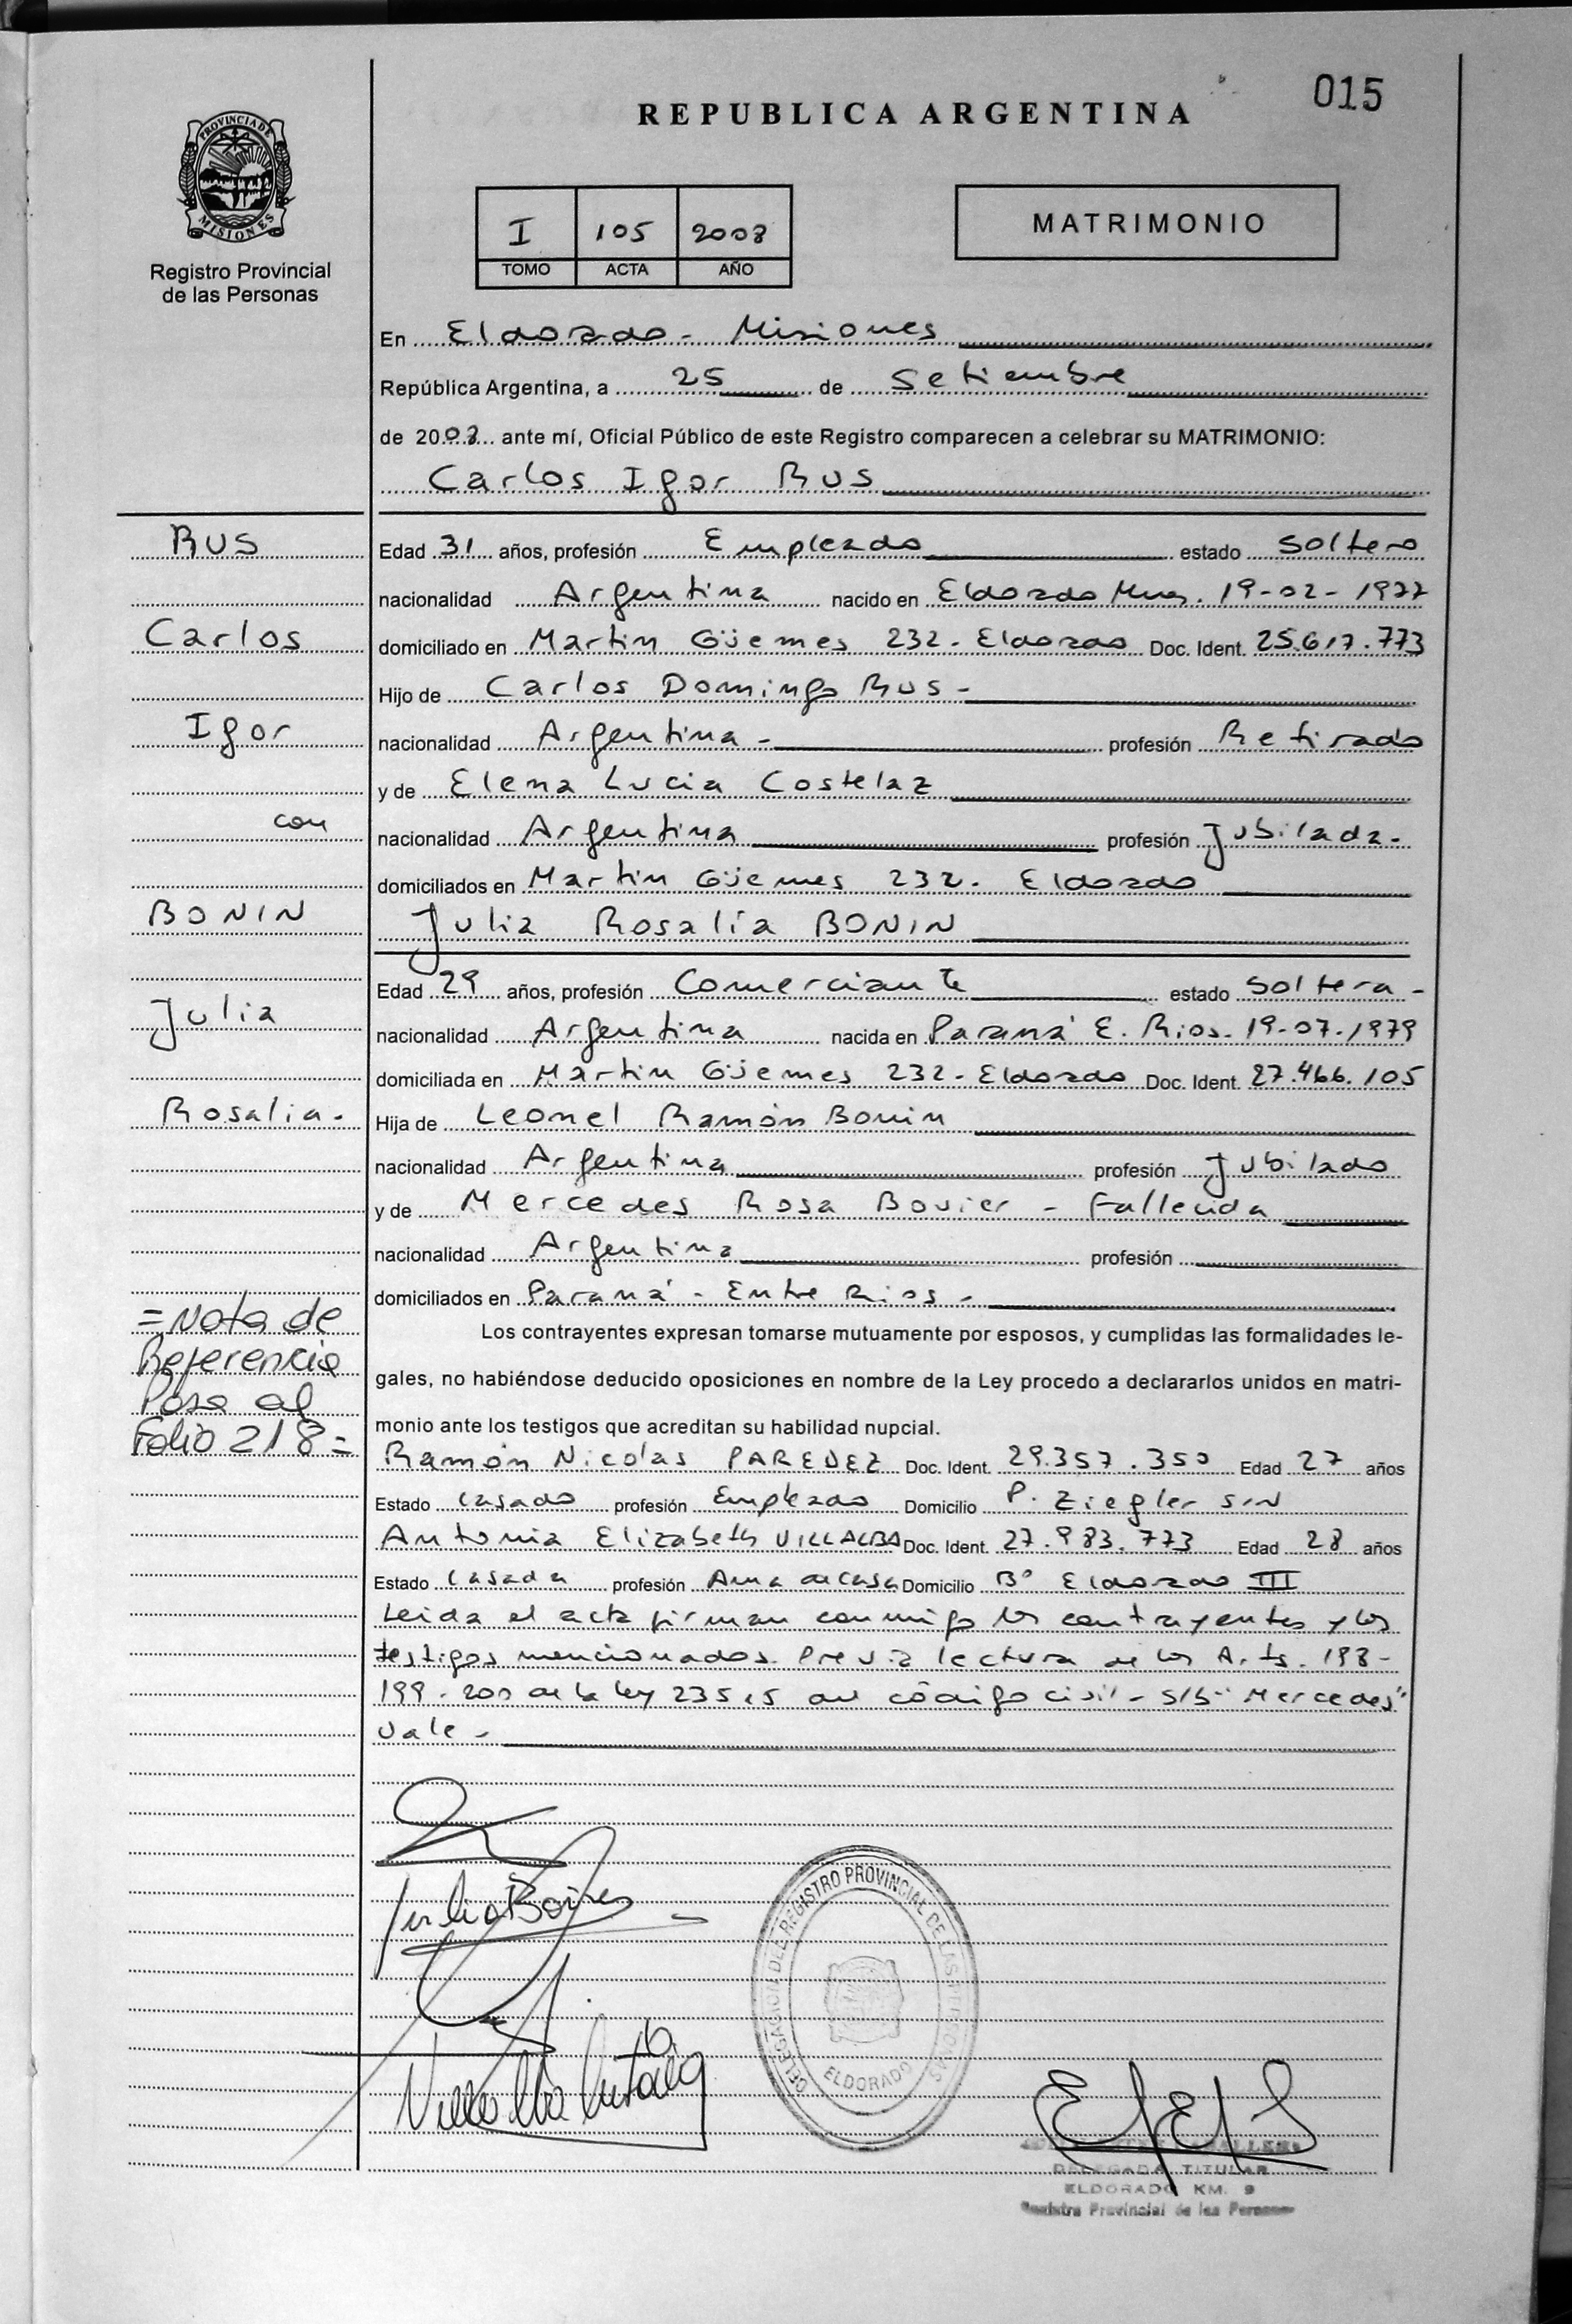 015
REPUBLICA ARGENTINA
PROVINCIA DE
MISIONES
Registro Provincial
de las Personas
I 105 2008
TOMO ACTA AÑO
MATRIMONIO
En Eldorado - Misiones
República Argentina, a 25 de Setiembre
de 2008 ante mí, Oficial Público de este Registro comparecen a celebrar su MATRIMONIO:
Carlos Igor Rus
RUS
Carlos
Igor
con
BONIN
Julia
Rosalia-
=Nota de
Referencia
Pasa al
Folio 218=
Edad 31 años, profesión Empleado estado Soltero
nacionalidad Argentina nacido en Eldorado Mnes. 19-02-1977
domiciliado en Martin Güemes 232- Eldorado Doc. Ident. 25.617.773
Hijo de Carlos Domingo Rus-
nacionalidad Argentina- profesión Retirado
y de Elena Lucia Costelaz
nacionalidad Argentina profesión Jubilada-
domiciliados en Martin Güemes 232- Eldorado
Julia Rosalía BONIN
Edad 29 años, profesión Comerciante estado Soltera-
nacionalidad Argentina nacida en Paraná E. Rios- 19-07-1979
domiciliada en Martin Güemes 232- Eldorado Doc. Ident. 27.466.105
Hija de Leonel Ramón Bonin
nacionalidad Argentina profesión Jubilado
y de Mercedes Rosa Bovier - Fallecida
nacionalidad Argentina profesión
domiciliados en Paraná - Entre Rios -
Los contrayentes expresan tomarse mutuamente por esposos, y cumplidas las formalidades le-
gales, no habiéndose deducido oposiciones en nombre de la Ley procedo a declararlos unidos en matri-
monio ante los testigos que acreditan su habilidad nupcial.
Ramón Nicolás PAREDEZ Doc. Ident. 29.357.350 Edad 27 años
Estado Casado profesión Empleado Domicilio P. Ziegler S/N
Antonia Elizabeth VILLALBA Doc. Ident. 27.983.773 Edad 28 años
Estado Casada profesión Ama de casa Domicilio B° Eldorado III
Leida el acta firman conmigo los contrayentes y los
testigos mencionados. Previa lectura de los Arts. 198-
199-200 de la ley 23515 del código civil- S/b "Mercedes"
Vale-
DELEGACION DEL REGISTRO PROVINCIAL DE LAS PERSONAS
ELDORADO
Villalba Antonia
DELEGADA TITULAR
ELDORADO KM. 9
Registro Provincial de las Personas